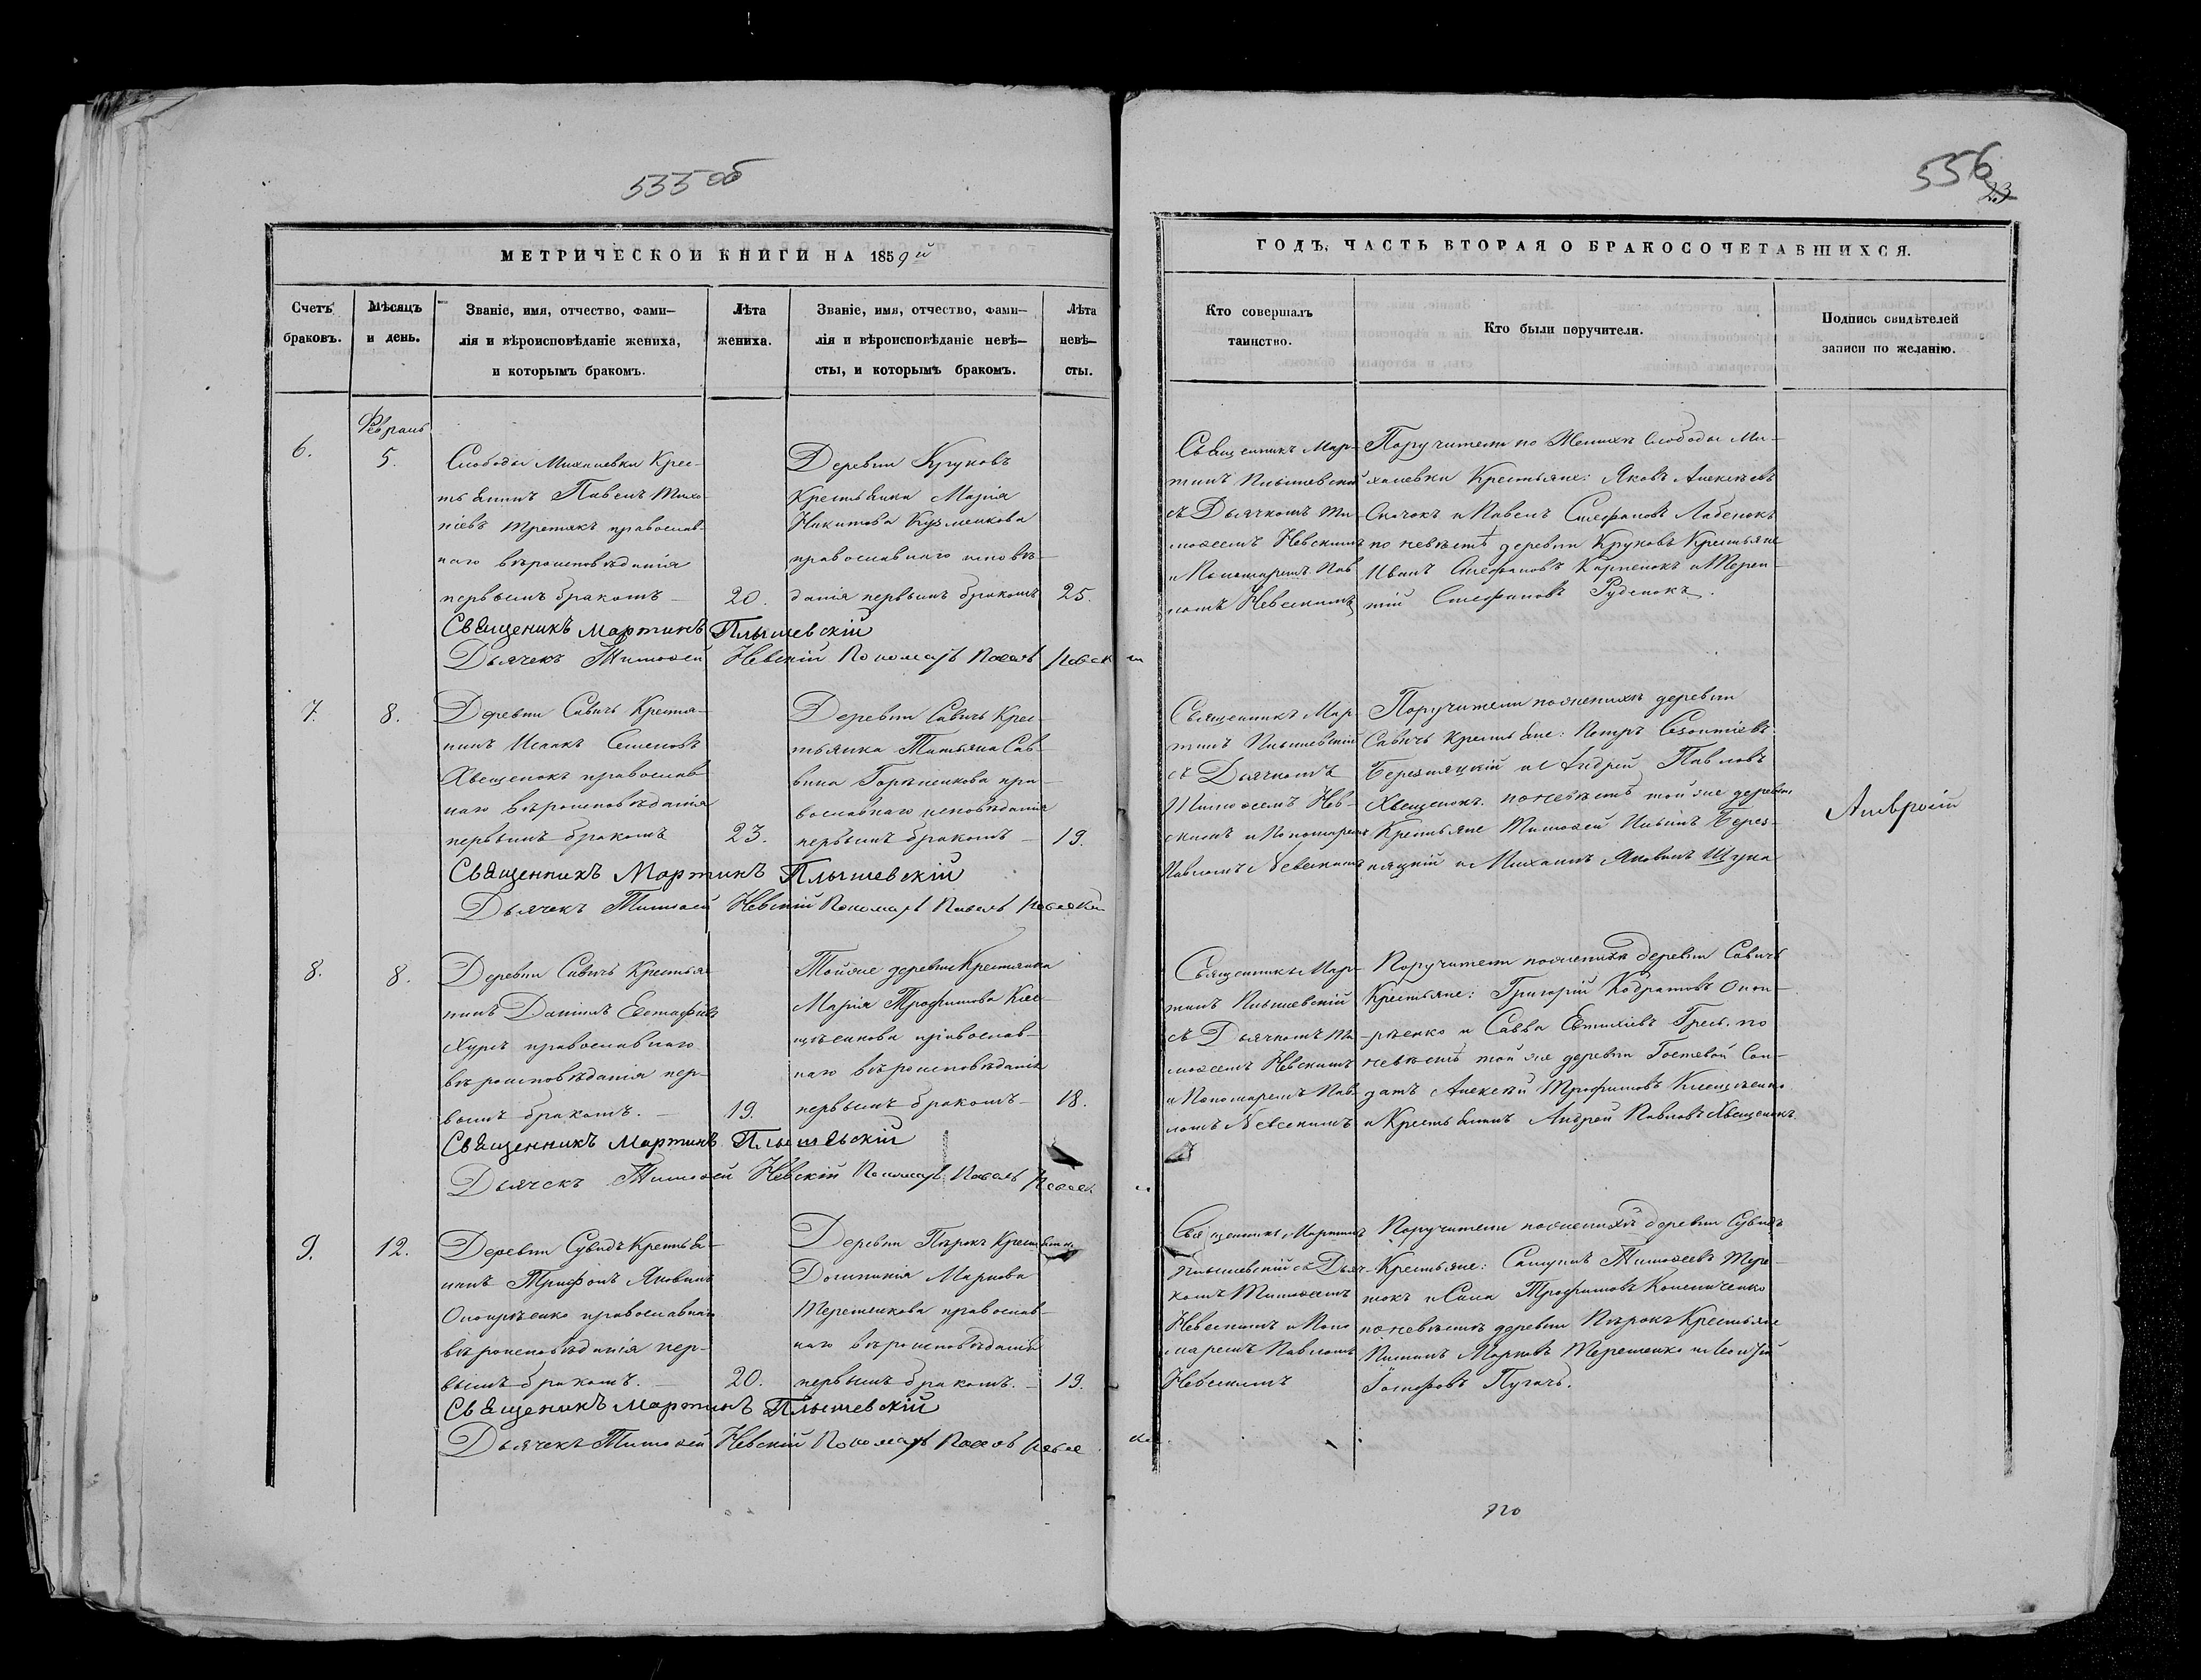 535 об
МЕТРИЧЕСКОИ КНИГИ НА 1859й
Счетъ браковъ.
Мѣсяцъ и день.
Званіе, имя, отчество, фами-
лія и вѣроисповѣданіе жениха,
и которымъ бракомъ.
Лѣта жениха.
Званіе, имя, отчество, фами-
лія и вѣроисповѣданіе невѣ-
сты, и которымъ бракомъ.
Лѣта невѣ-
сты.
6.
Февраль
5.
Слободы Михалевки Крес-
тьянинъ Павелъ
Третякъ православ-
наго вѣроисповѣданія
первымъ бракомъ
20.
Деревни Круковъ
Крестьянка Марія
Никитова Кузменкова
православнаго исповѣ-
данія первымъ бракомъ
25.
Священикъ Мартинъ Плышевскій
Дьячекъ Тимоѳей Невскій Пономарь Павелъ Невскій
7.
8.
Деревни Савичъ Крестья-
нинъ Исаакъ Семеновъ
Хвещенокъ православ-
наго вѣроисповѣданія
первымъ бракомъ
23.
Деревни Савичъ Крес-
тьянка Татьяна Сав-
вина пра-
вославнаго исповѣданія
первымъ бракомъ
19.
Священникъ Мартинъ Плышевскій
Дьячекъ Тимоѳей Невскій Пономарь Павелъ Невскій
8.
8.
Деревни Савичъ Крестья-
нинъ Даніилъ Евстафіевъ
Хурсъ православнаго
вѣроисповѣданія пер-
вымъ бракомъ.
19.
Тойже деревни Крестьянка
Марія Трофимова Кле-
щенкова православ-
наго вѣроисповѣданія
первымъ бракомъ
18.
Священникъ Мартинъ Плышевскій
Дьячекъ Тимоѳей Невскій Пономарь Павелъ Невск
9.
12.
Деревни Сувидъ Крестья-
нинъ Трифонъ Яковлевъ
православнаго
вѣроисповѣданія пер-
вымъ бракомъ.
20.
Деревни Пѣрокъ Крестьянка
Домникія Маркова
Терешенкова православ-
наго вѣроисповѣданія
первымъ бракомъ.
19.
Священикъ Мартинъ Плышевскій
Дьячекъ Тимоѳей Невскій Пономарь Павелъ Невск
556
23
ГОДЪ, ЧАСТЬ ВТОРАЯ О БРАКОСОЧЕТАВШИХСЯ.
Кто совершалъ
таинство.
Кто были поручители.
Подпись свидѣтелей
записи по желанію.
Священикъ Мар-
тинъ Плышевскій
съ Дьячкомъ Ти-
моѳеемъ Невскимъ
и Пономаремъ Пав
ломъ Невскимъ
Поручители по Женихѣ Слободы Ми-
халевки Крестьяне: Яковъ Алексѣевъ
и Павелъ Стефановъ Лабенокъ
по невѣстѣ деревни Круковъ Крестьяне
Иванъ Стефановъ Карпенокъ и Терен-
тій Стефановъ Руденокъ.
Священникъ Мар-
тинъ Плышевскій
съ Дьячкомъ
Тимоѳеемъ Нев-
скимъ и Пономаремъ
Павломъ Невскимъ
Поручители по женихѣ деревни
Савичъ Крестьяне: Петръ
Березняцкій и Андрей Павловъ
Хвещенокъ. по невѣстѣ той же деревни
Крестьяне Тимоѳей Ильинъ Берез-
няцкій и Михаилъ Яковлевъ Щука
Амвросій
Священникъ Мар-
тинъ Плышевскій
съ Дьячкомъ Ти-
моѳеемъ Невскимъ
и Пономаремъ Пав-
ломъ Невскимъ
Поручители по женихѣ деревни Савичъ
Крестьяне: Григорій Кодратовъ Опон-
ренко и Савва Евтихіевъ Гресь. по
невѣстѣ той же деревни Гостевой Сол-
датъ Алексѣй Трофимовъ Клещенко
и Крестьянинъ Андрей Павловъ Хвещенокъ
Священникъ Мартинъ
Плышевскій съ Дьяч-
комъ Тимоѳеемъ
Невскимъ и Поно
маремъ Павломъ
Невскимъ
Поручители по женихѣ деревни Сувидъ
Крестьяне: Самуилъ Тимоѳеевъ Тере-
и Сила Трофимовъ
по невѣстѣ деревни Пѣрокъ Крестьяне
Пименъ Марковъ Терешенко и
Іосифовъ Пугачъ.
720